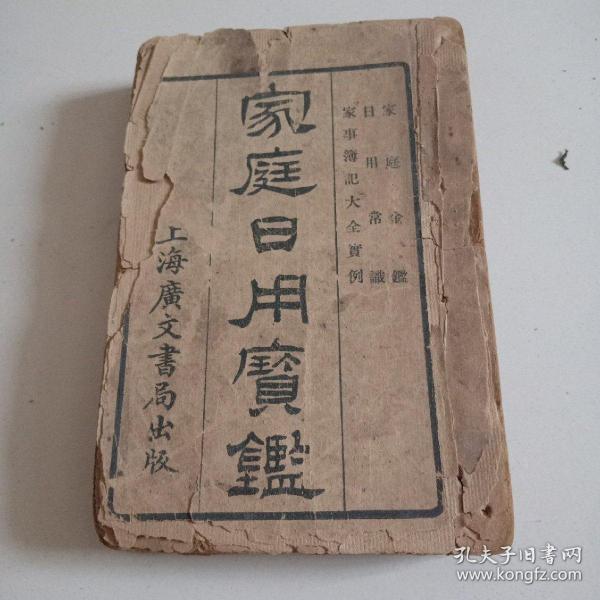 家庭金鑑
日用常識
家事簿記大全實例
家庭日用寶鑑
上海廣文書局出版
孔夫子旧书网
www.kongfz.com